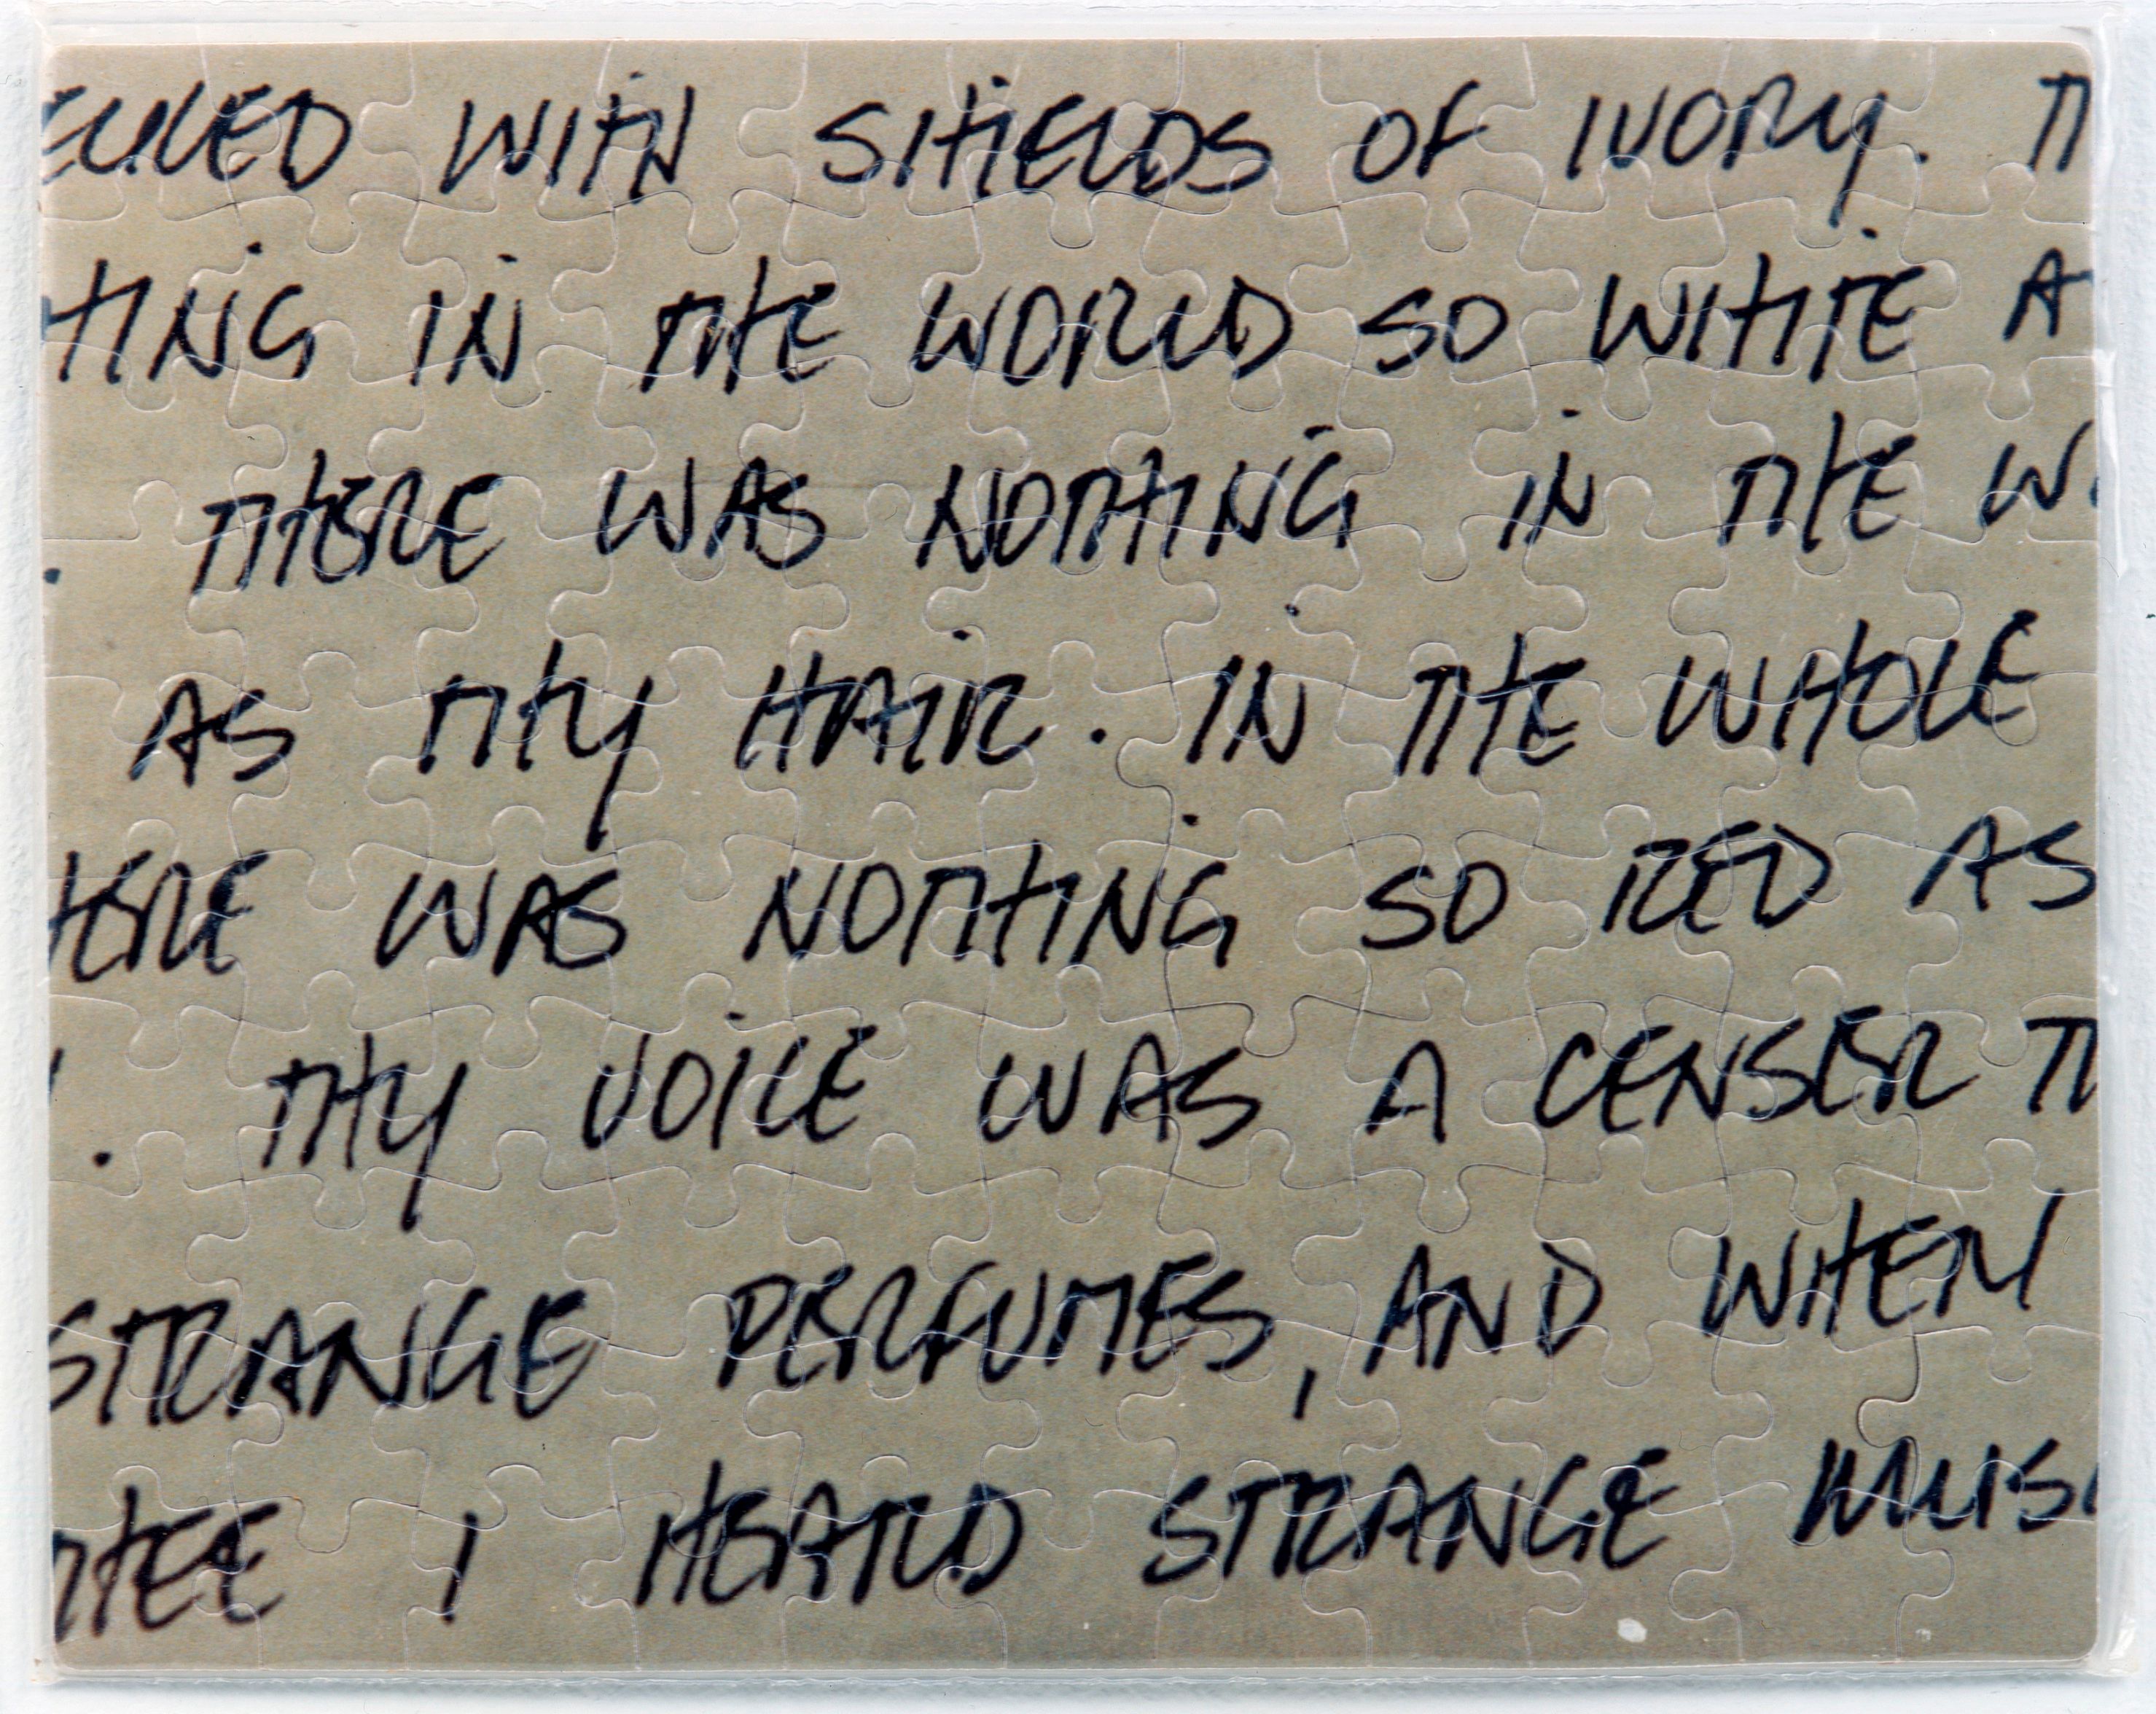 ECKED WITH SHIELDS OF IVORY. TH
HING IN THE WORLD SO WHITE A
. THERE WAS NOTHING IN THE W
AS THY HAIR. IN THE WHOLE
HERE WAS NOTHING SO RED AS
. THY VOICE WAS A CENSER TH
STRANGE PERFUMES, AND WHEN I
THEE I HEARD STRANGE MUSI